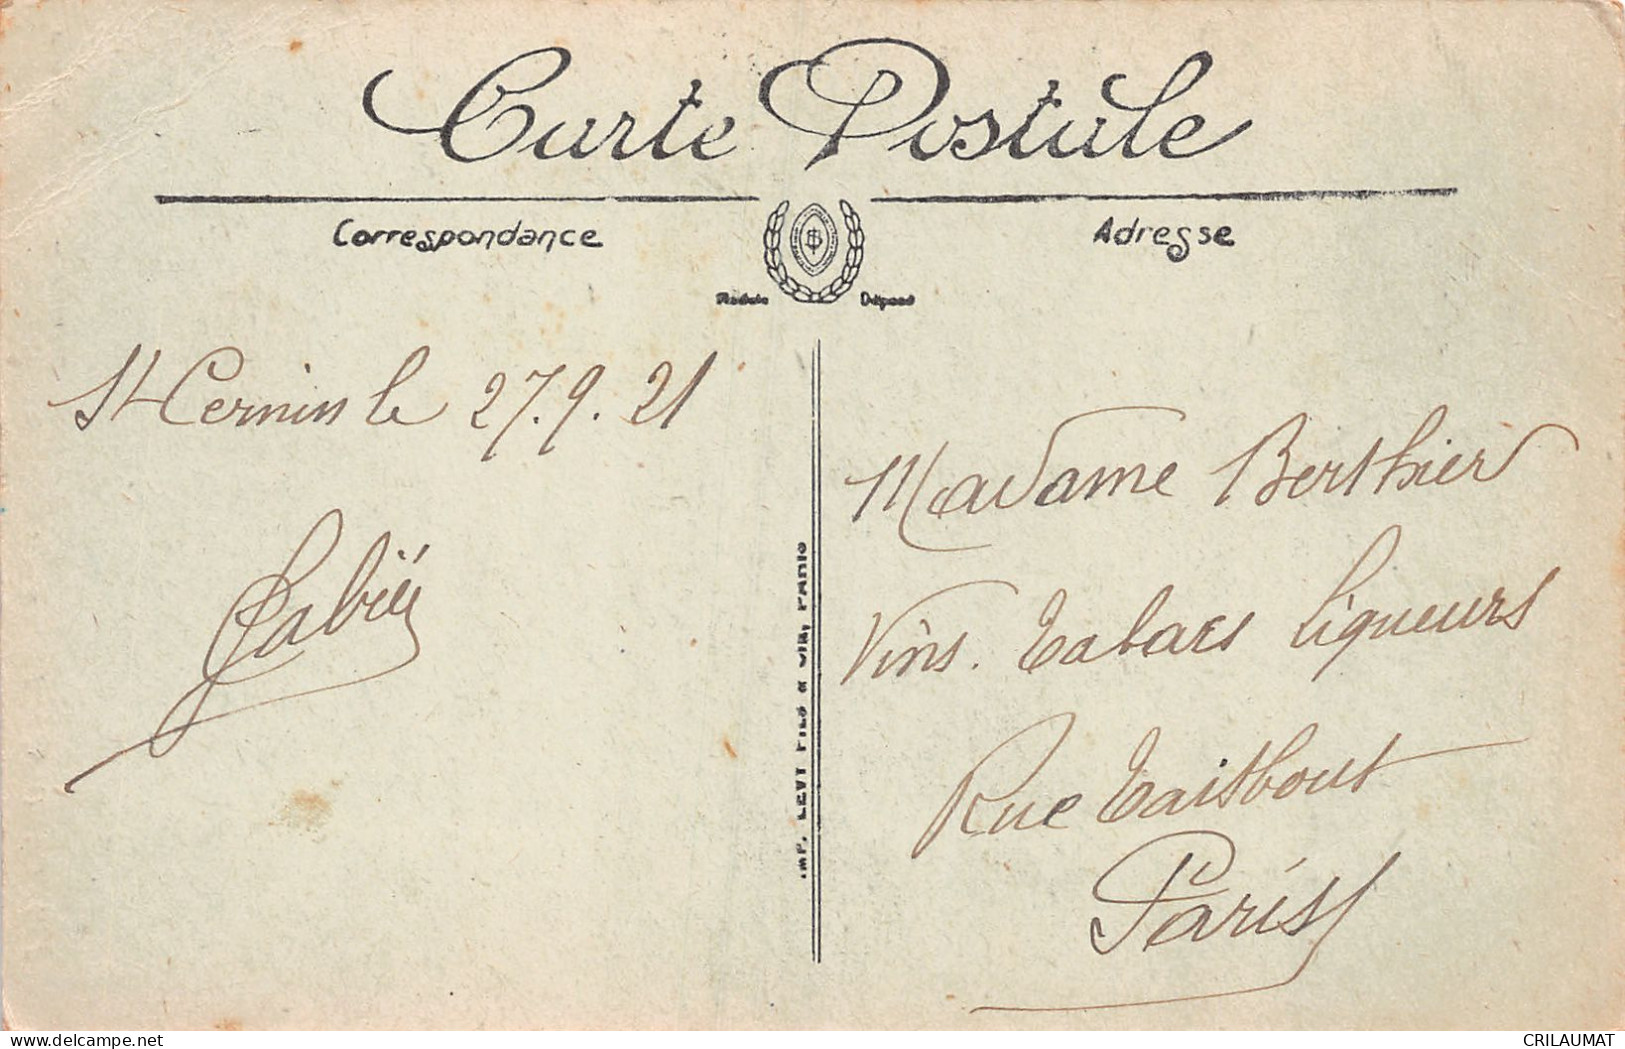 Carte Postale
Correspondance
Adresse
Modèle Déposé
St Cernin le 27.9.21
Madame Berthier
Vins. Tabacs Liqueurs
Rue Taitbout
Paris
IMP. LEVY FILS & CIE, PARIS
delcampe.net
CRILAUMAT